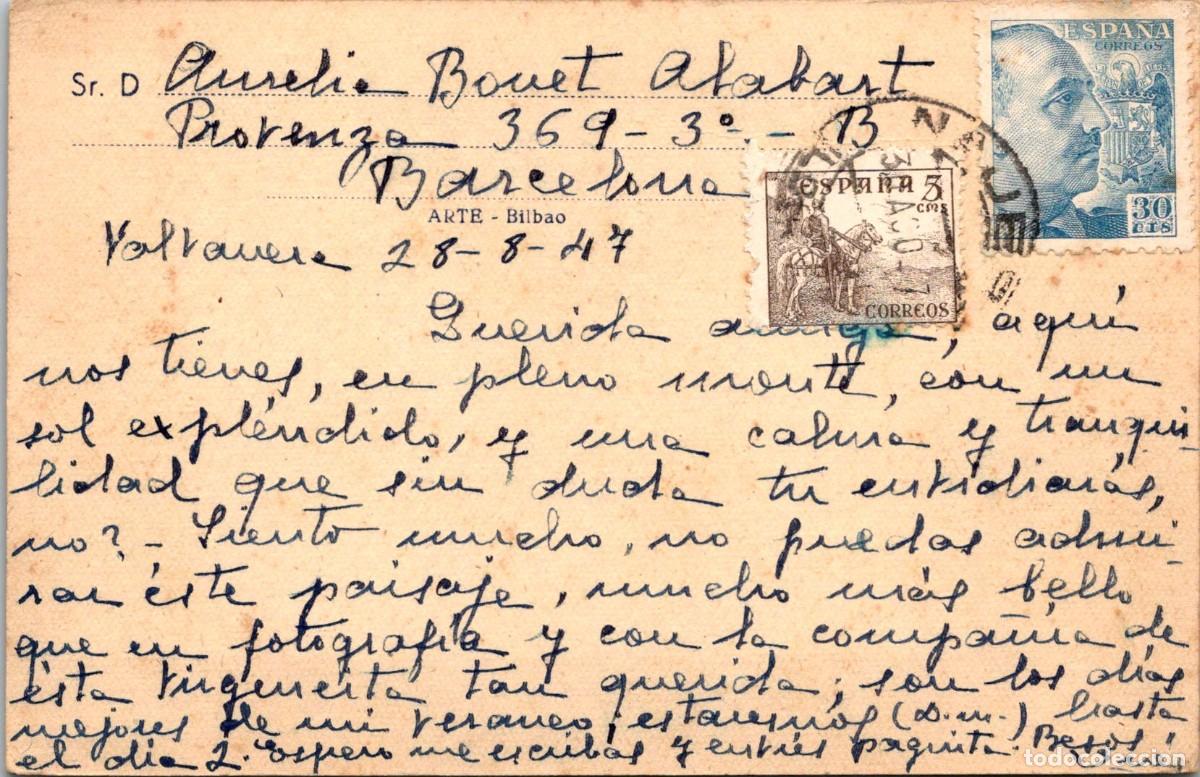 ESPAÑA
CORREOS
30
CTS
Sr. D Aurelia Bonet Alabart
Provenza 369-3º.- B
Barcelona
ESPAÑA 5
CMS
CORREOS
NAJE
30 AGO
ARTE - Bilbao
Valvanera 28-8-47
Querida amiga, aquí
nos tienes, en pleno monte, con un
sol expléndido, y una calma y tranqui-
lidad que sin duda tu envidiarás,
no? - Siento mucho, no puedas admi-
rar éste paisaje, mucho más bello
que en fotografía y con la compañía de
ésta virgencita tan querida; son los días
mejores de mi veraneo; estaremos (D.m.) hasta
el día 2. Espero me escribas y envies paguita. Besos
todocoleccion